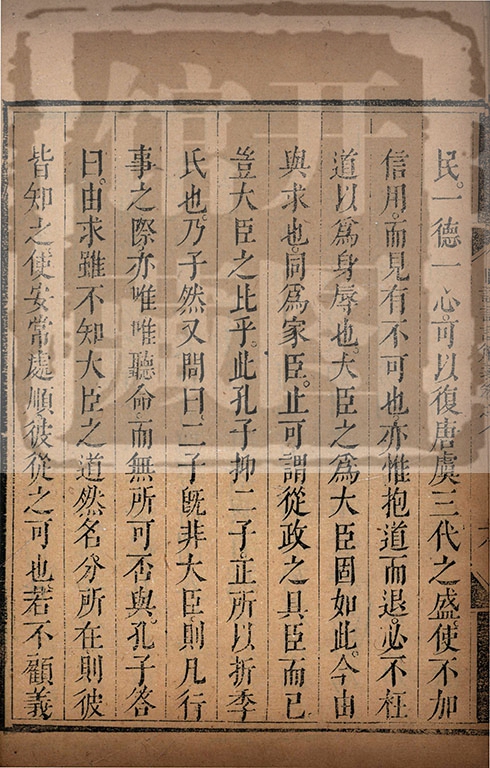 民。一德一心。可以復唐虞三代之盛。使不加
信用。而見有不可也。亦惟抱道而退。必不枉
道以爲身辱也。大臣之爲大臣固如此。今由
與求也。同爲家臣。止可謂從政之具臣而已
豈大臣之比乎。此孔子抑二子。正所以折季
氏也。乃子然又問曰。二子旣非大臣。則凡行
事之際。亦唯唯聽命。而無所可否與。孔子答
曰。由求雖不知大臣之道。然名分所在。則彼
皆知之。使安常處順。彼從之可也。若不顧義